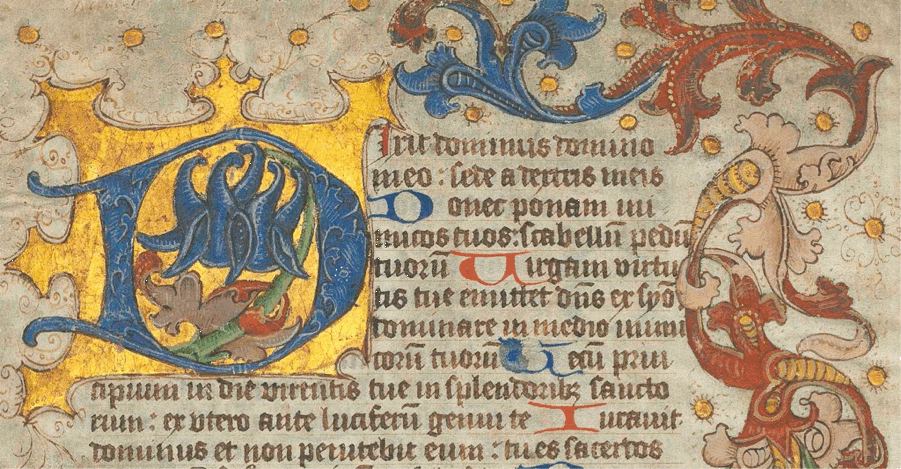 DIxit dominus domino
meo : sede a dextris meis
Donec ponam ini
micos tuos : scabellū pedū
tuorū Uirgam virtu
tis tue emittet dn̄s ex syō
dominare in medio inimi
corū tuorū Tecū prin
cipium in die virtutis tue in splendoribꝫ sancto
rum : ex vtero ante luciferū genui te Iurauit
dominus et non penitebit eum : tu es sacerdos